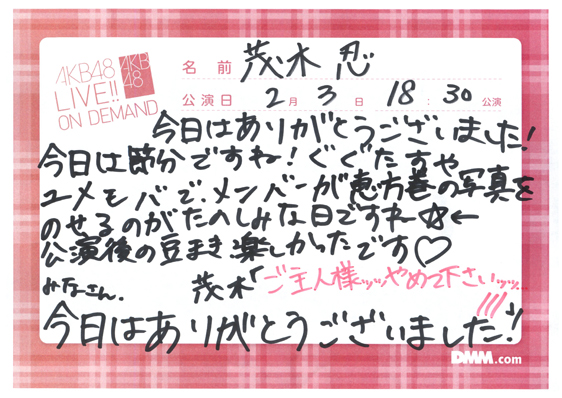 AKB48
LIVE!!
ON DEMAND
AKB
48
名前 茂木 忍
公演日 2月3日 18:30公演
今日はありがとうございました!
今日は節分ですね!ぐぐたすや
ユメモバで、メンバーが恵方巻の写真を
のせるのがたのしみな日ですねー☆←
公演後の豆まき楽しかったです♡
みなさん。 茂木「ご主人様ッッやめて下さいッッ
///」
今日はありがとうございました!
DMM.com